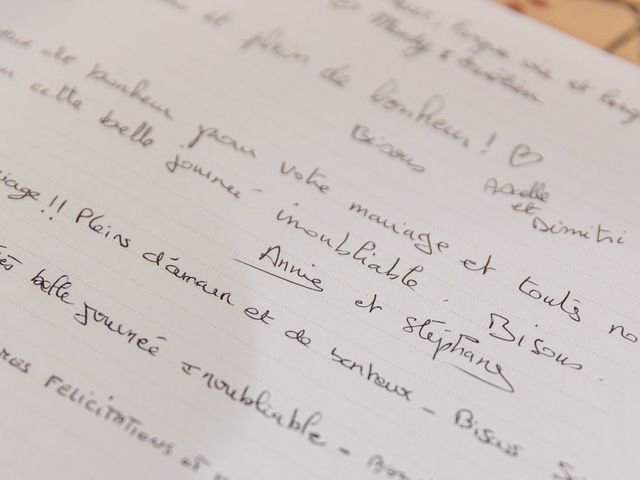 longue vie et long
et plein de bonheur ! ♡
Bisous
et
Dimitri
de bonheur pour votre mariage et touts no
cette belle journée inoubliable. Bisous.
Annie et Stéphane
iage !! Pleins d'amour et de bonheux - Bisous
belle journée inoubliable -
FELICITATIONS et